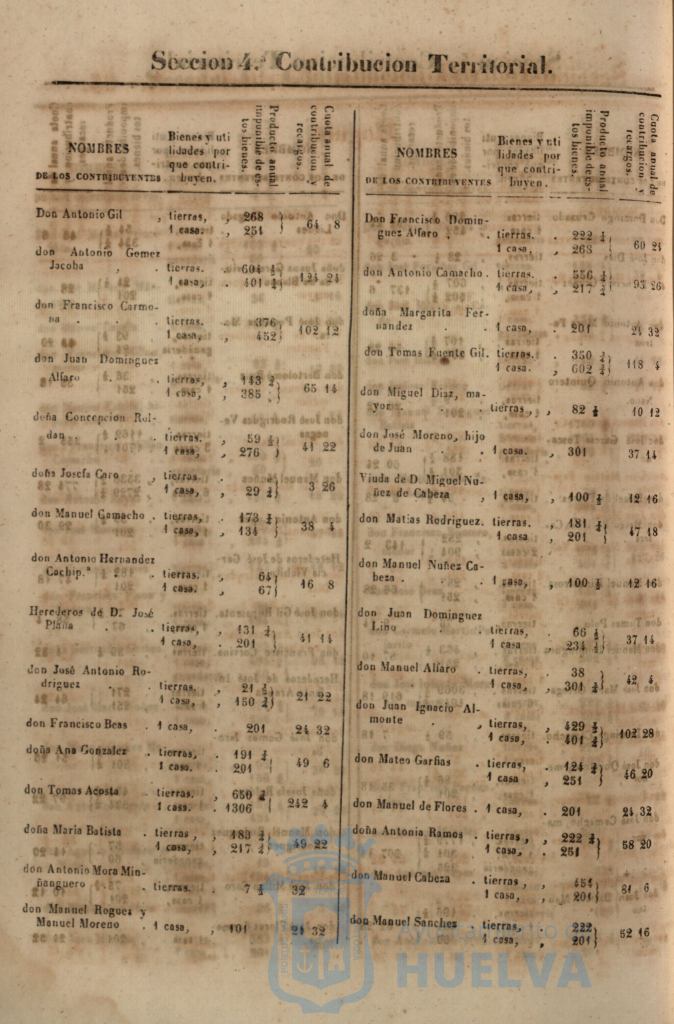 Seccion 4.ª Contribucion Territorial.
NOMBRES
DE LOS CONTRIBUYENTES
Bienes y uti
lidades por
que contri-
buyen.
Producto anual
imponible de es-
tos bienes.
Cuota anual de
contribucion y
recargos.
Don Antonio Gil , tierras, , 268
1 casa. , 251 } 64 8
don Antonio Gomez
Jacoba , . tierras. . 604 ½
1 casa, , 401 ½ } 124 24
don Francisco Carmo-
na . . . tierras. 376
1 casa, , 452 } 102 12
don Juan Dominguez
Alfaro . . tierras, , 143 ½
1 casa, , 385 } 65 14
doña Concepcion Rol-
dan . . tierras. , 59 ½
1 casa, , 276 } 41 22
doña Josefa Caro , tierras.
1 casa, , 29 ½ } 3 26
don Manuel Camacho . tierras, , 173 ½
1 casa, , 134 } 38 4
don Antonio Hernandez
Cachip.ª . tierras. , 64
1 casa. , 67 } 16 8
Herederos de D. José
Plaña . . tierras, , 131 ½
1 casa, . 201 } 41 14
don José Antonio Ro-
driguez . . tierras. , 21 ½
1 casa, , 150 ½ } 21 22
don Francisco Beas . 1 casa, , 201 24 32
doña Ana Gonzalez . tierras, , 191 ½
1 casa. . 201 } 49 6
don Tomas Acosta . tierras. . 650 ½
1 casa. . 1306 } 242 4
doña Maria Batista . tierras , , 183 ½
1 casa, , 217 ½ } 49 22
don Antonio Mora Min-
ñanguero . tierras. . 7 ½ 32
don Manuel Roguez y
Manuel Moreno . 1 casa, , 101 21 32
NOMBRES
DE LOS CONTRIBUYENTES
Bienes y uti
lidades por
que contri-
buyen.
Producto anual
imponible de es-
tos bienes.
Cuota anual de
contribucion y
recargos.
Don Francisco Domin-
guez Alfaro . . tierras. . 222 ½
1 casa, . 268 } 60 24
don Antonio Camacho . tierras. . 556 ½
1 casa, . 217 ½ } 95 26
doña Margarita Fer-
nandez . . 1 casa, . 201 24 32
don Tomas Fuente Gil. tierras. . 350 ½
1 casa. . 602 ½ } 118 4
don Miguel Diaz, ma-
yor . . tierras, , 82 ½ 10 12
don José Moreno, hijo
de Juan . . 1 casa. , 301 37 14
Viuda de D. Miguel Nu-
ñez de Cabeza , 1 casa, , 100 ½ 12 16
don Matias Rodriguez. tierras. . 181 ½
1 casa , 201 } 47 18
don Manuel Nuñez Ca-
beza . . . 1 casa, , 100 ½ 12 16
don Juan Dominguez
Lino . . tierras, 66 ½
1 casa , 234 ½ } 37 14
don Manuel Alfaro . tierras, . 38
1 casa, , 301 ½ } 42 4
don Juan Ignacio Al-
monte . , tierras, , 429 ½
1 casa, , 401 ½ } 102 28
don Mateo Garfias . tierras, . 124 ½
1 casa , 251 } 46 20
don Manuel de Flores . 1 casa, . 201 24 32
doña Antonia Ramos . tierras , , 222 ½
1 casa, . 251 } 58 20
don Manuel Cabeza . tierras , , 451
1 casa, , 201 } 81 6
don Manuel Sanchez . tierras, , 222
1 casa, , 201 } 52 16
HUELVA